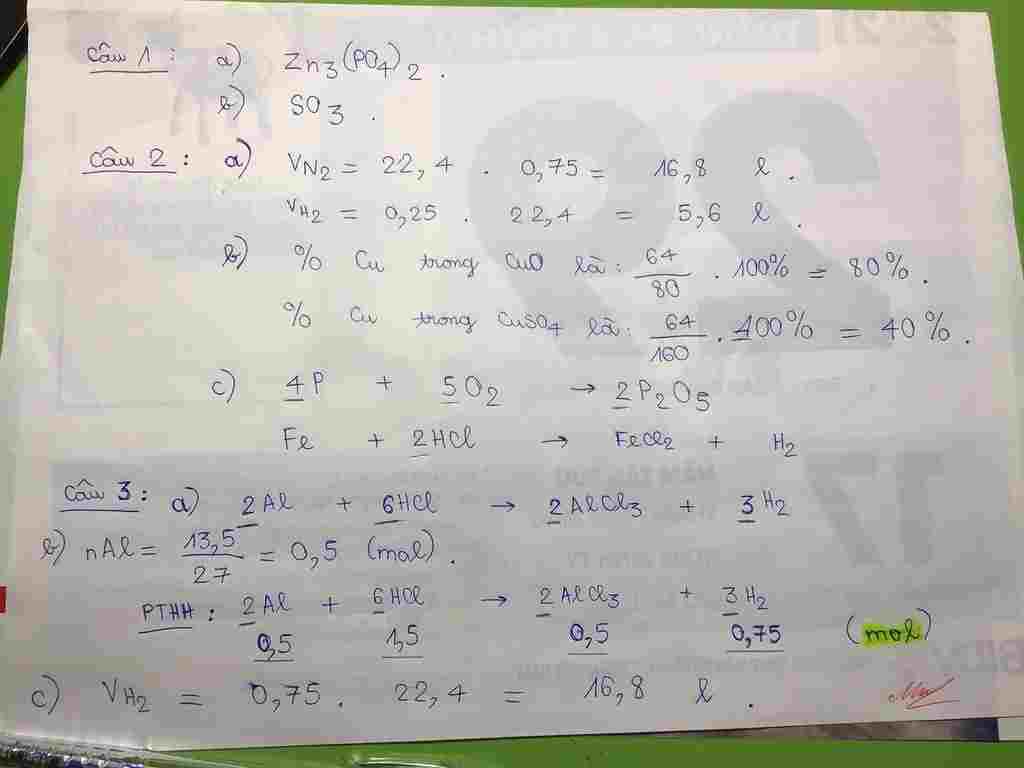 Câu 1 : a) Zn3(PO4)2 .
b) SO3 .
Câu 2 : a) VN2 = 22,4 . 0,75 = 16,8 l .
VH2 = 0,25 . 22,4 = 5,6 l .
b) % Cu trong CuO là : 64/80 . 100% = 80% .
% Cu trong CuSO4 là : 64/160 . 100% = 40% .
c) 4P + 5O2 → 2P2O5
Fe + 2HCl → FeCl2 + H2
Câu 3 : a) 2Al + 6HCl → 2AlCl3 + 3H2
b) nAl = 13,5/27 = 0,5 (mol) .
PTHH : 2Al + 6HCl → 2AlCl3 + 3H2
0,5 1,5 0,5 0,75 (mol)
c) VH2 = 0,75 . 22,4 = 16,8 l .